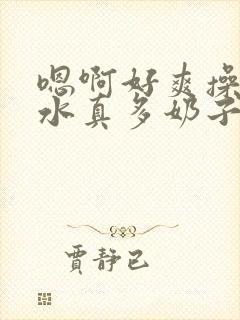 嗯啊好爽操
水真多奶子
贾静已